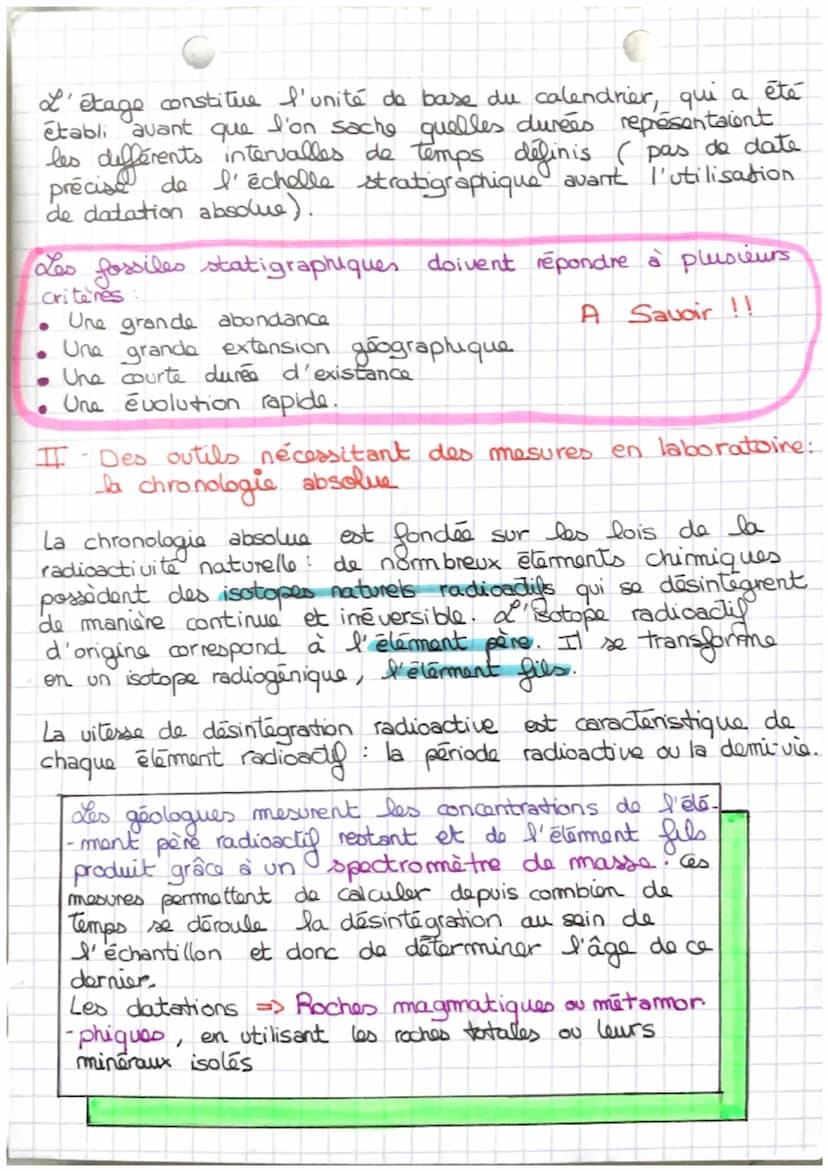 L'étage constitue l'unité de base du calendrier, qui a été
établi avant que l'on sache quelles durées représentaient
les différents intervalles de temps définis ( pas de date
précise de l'échelle stratigraphique avant l'utilisation
de datation absolue).
Les fossiles statigraphiques doivent répondre à plusieurs
critères :
• Une grande abondance
A Savoir !!
• Une grande extension géographique
• Une courte durée d'existance
• Une évolution rapide.
II - Des outils nécessitant des mesures en laboratoire:
la chronologie absolue
La chronologie absolue est fondée sur les lois de la
radioactivité naturelle : de nombreux éléments chimiques
possèdent des isotopes naturels radioactifs qui se désintègrent
de manière continue et irréversible. L'isotope radioactif
d'origine correspond à l'élément père. Il se transforme
en un isotope radiogénique, l'élément fils.
La vitesse de désintégration radioactive est caractéristique de
chaque élément radioactif : la période radioactive ou la demi-vie.
Les géologues mesurent les concentrations de l'élé-
-ment père radioactif restant et de l'élément fils
produit grâce à un spectromètre de masse. Ces
mesures permettent de calculer depuis combien de
temps se déroule la désintégration au sein de
l'échantillon et donc de déterminer l'âge de ce
dernier.
Les datations => Roches magmatiques ou métamor-
-phiques, en utilisant les roches totales ou leurs
minéraux isolés